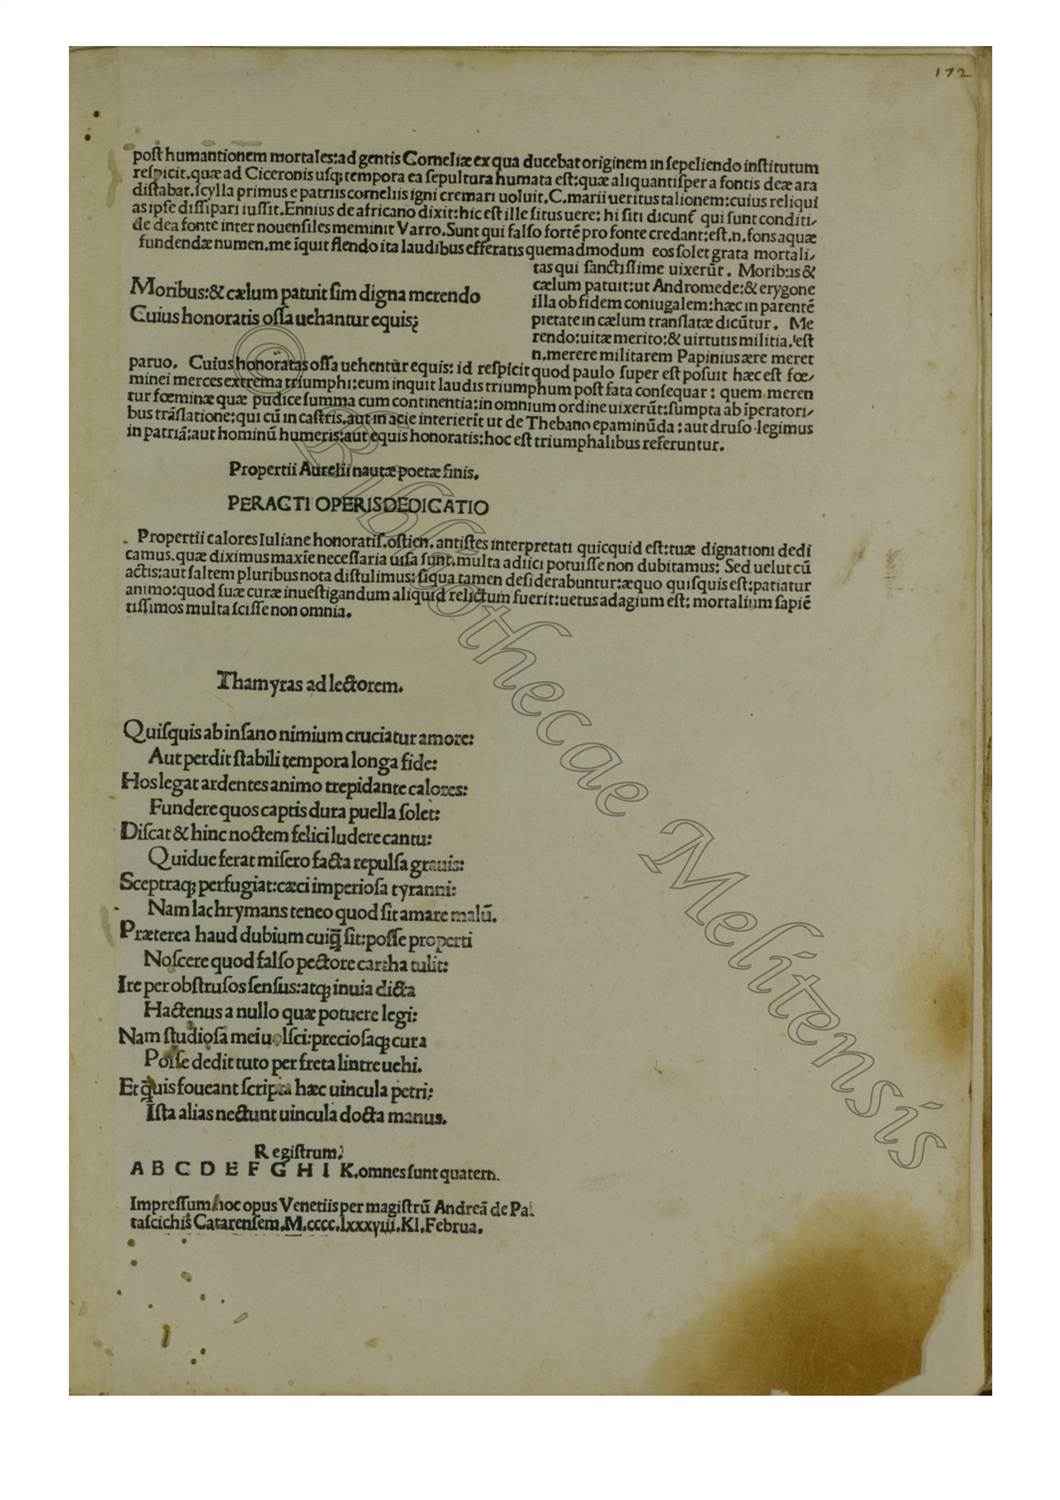 172
post humantionem mortales:ad gentis Corneliæ ex qua ducebat originem in sepeliendo institutum
respicit.quæ ad Ciceronis usq; tempora ea sepultura humata est:quæ aliquantisper a fontis deæ ara
distabat.scylla primus e patriis corneliis igni cremari uoluit.C.marii ueritus talionem:cuius reliqui
as ipse dissipari iussit.Ennius de africano dixit:hic est ille situs uere: hi siti dicunt̃ qui sunt conditi/
de dea fonte inter nouensiles meminit Varro.Sunt qui falso forte pro fonte credant:est.n.fons aquæ
fundendæ numen.me ĩquit flendo ita laudibus efferatis quemadmodum eos solet grata mortali/
tas qui sanctissime uixerũt. Morib:us &
cælum patuit:ut Andromede:& erygone
illa ob fidem coniugalem:hæc in parentẽ
pietate in cælum translatæ dicũtur. Me
rendo:uitæ merito:& uirtutis militia.est
n.merere militarem Papinius ære meret
Moribus:& cælum patuit sim digna merendo
Cuius honoratis ossa uehantur equis?
paruo. Cuius honoratas ossa uehentur equis: id respicit quod paulo super est posuit hæc est fœ/
minei merces extrema triumphi:eum inquit laudis triumphum post fata consequar: quem meren
tur fœminæ quæ pudice summa cum continentia:in omnium ordine uixerũt:sumpta ab ĩperatori/
bus trãslatione:qui cũ in castris.aut in acie interierit ut de Thebano epaminũda:aut druso legimus
in patriã:aut hominũ humeris:aut equis honoratis:hoc est triumphalibus referuntur.
Propertii Aurelii nautæ poetæ finis.
PERACTI OPERIS DEDICATIO
Propertii calores Iuliane honoratiss.ostien.antistes interpretati quicquid est:tuæ dignationi dedi
camus.quæ diximus maxĩe necessaria uisa sunt.multa adiici potuisse non dubitamus: Sed uelut cũ
actis:aut saltem pluribus nota distulimus:siqua tamen desiderabuntur:æquo quisquis est:patiatur
animo:quod suæ curæ inuestigandum aliquid relictum fuerit:uetus adagium est: mortalium sapiẽ
tissimos multa scisse non omnia.
Thamyras ad lectorem.
Quisquis ab insano nimium cruciatur amore:
Aut perdit stabili tempora longa fide:
Hos legat ardentes animo trepidante calores:
Fundere quos captis dura puella solet:
Discat & hinc noctem felici ludere cantu:
Quidue ferat misero facta repulsa grauis:
Sceptraq; perfugiat:cæci imperiosa tyranni:
Nam lachrymans teneo quod sit amare malũ.
Præterea haud dubium cuiq̃ sit:posse properti
Noscere quod falso pectore cartha tulit:
Ire per obstrusos sensus:atq; inuia dicta
Hactenus a nullo quæ potuere legi:
Nam studiosa mei uolsci:preciosaq; cura
Posse dedit tuto per freta lintre uehi.
Et q̃uis foueant scripta hæc uincula petri:
Ista alias nectunt uincula docta manus.
Registrum.
A B C D E F G H I K.omnes sunt quatern.
Impressum hoc opus Venetiis per magistrũ Andreã de Pal
tascichis Catarensem.M.cccc.lxxxviii.Kl.Februa.
© Bibliothecae Melitensis